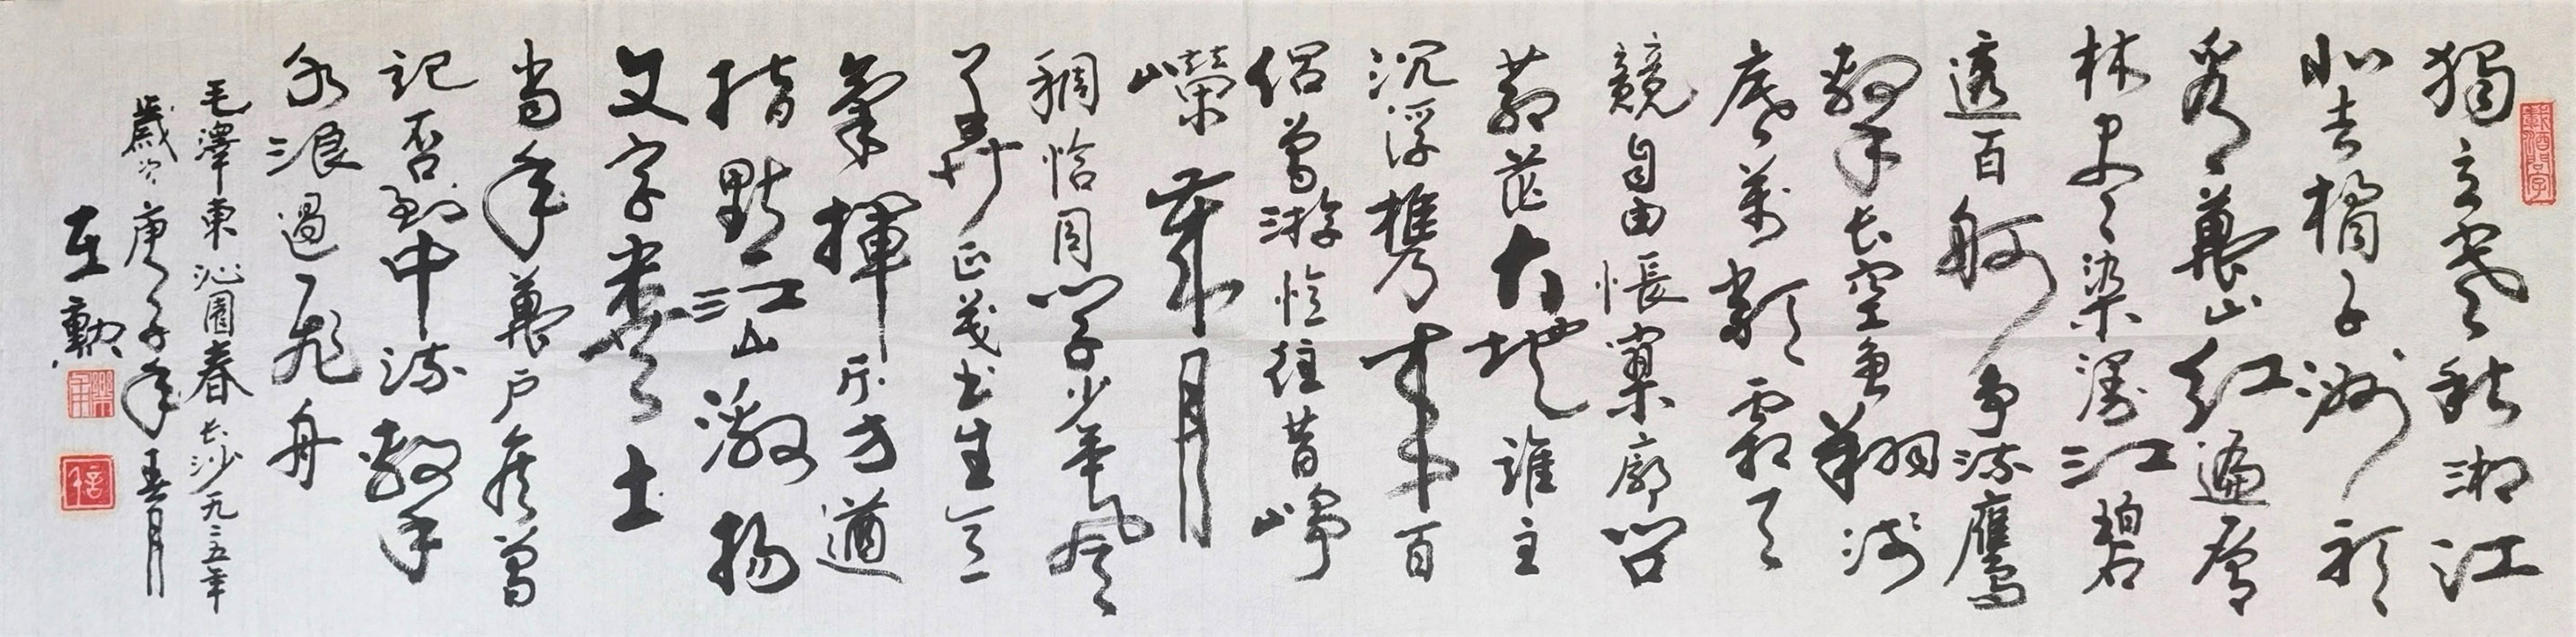 獨立寒秋湘江
北去橘子洲頭
看萬山紅遍層
林尽染漫江碧
透百舸爭流鷹
擊長空魚翔淺
底萬類霜天
競自由悵寥廓問
蒼茫大地誰主
沉浮攜來百
侶曾游憶往昔崢
嶸歲月
稠恰同學少年風
華正茂书生意
氣揮斥方遒
指點江山激揚
文字糞土
當年萬戶侯曾
記否到中流擊
水浪遏飛舟
毛澤東沁園春長沙一九二五年
歲次庚子年春月
在勳
信